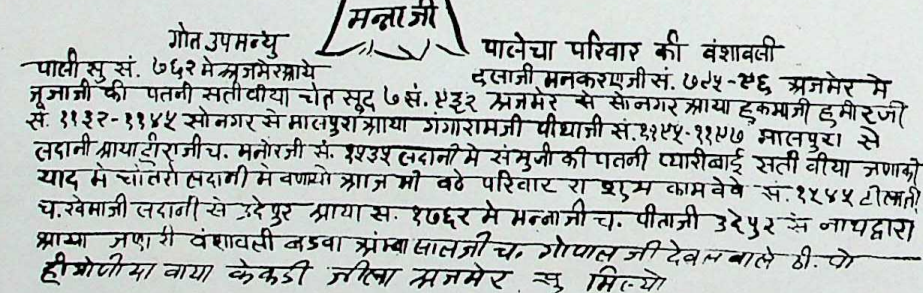 मन्नाजी
गोत उपमन्यु
पालेचा परिवार की वंशावली
पाली सु सं. ७६२ मे अजमेर आये दलाजी मनकरणजी सं. ७९५-९६ अजमेर मे
जूजाजी की पतनी सती वीया चेत सूद ७ सं. ९३२ अजमेर से सोनगर आया हुकमाजी हुमीरजी
सं. ११३२-११४५ सोनगर से मालपुरा आया गंगारामजी पीथाजी सं. ११९५-११९७ मालपुरा से
लदानी आया हीराजी च. मनोरजी सं. १५३५ लदानी मे संमुजी की पतनी प्यारीबाई सती वीया जणाकी
याद मे चांतरो लदानी मे वणायो आज भी वठे परिवार रा शुभ काम वेवे सं. १५४५
च. खेमाजी लदानी से उदेपुर आया स. १७६२ मे मन्नाजी च. पीताजी उदेपुर सं नाथद्वारा
आया जणा री वंशावली बडवा अंम्बालालजी च. गोपाल जी देवल वाले ठी. पो
वाया केकडी जीला अजमेर सु मिल्यो